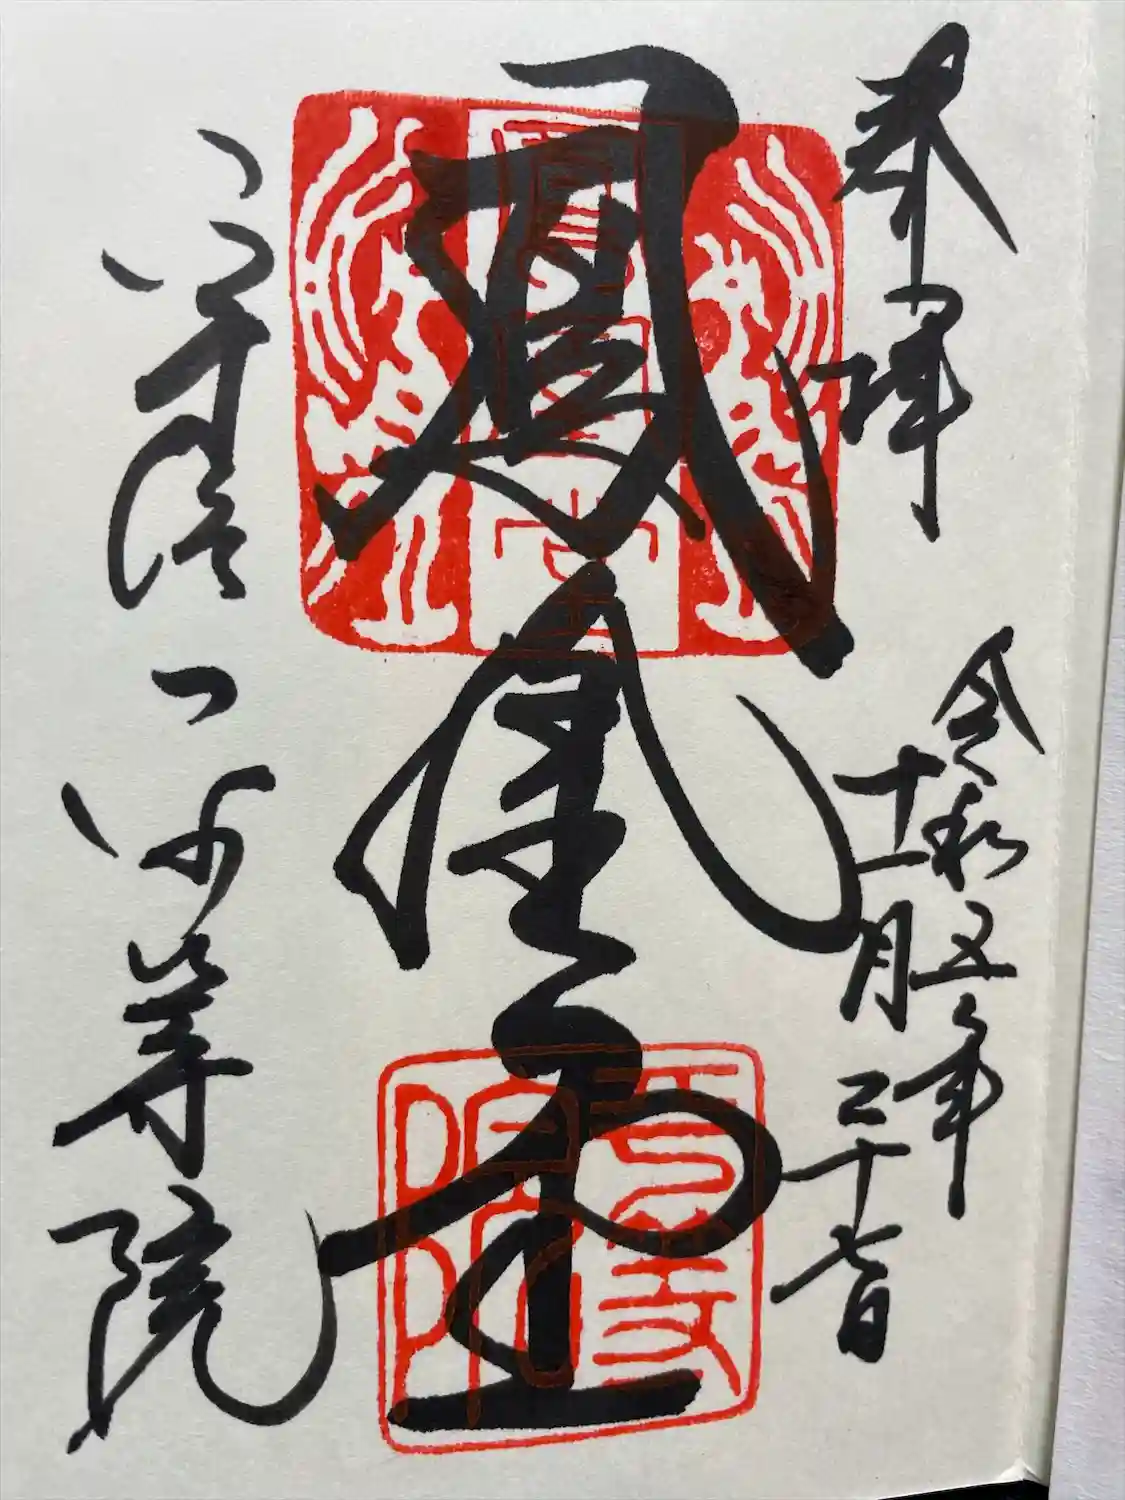 奉拝
令和五年
十一月二十七日
鳳凰堂
宇治 平等院